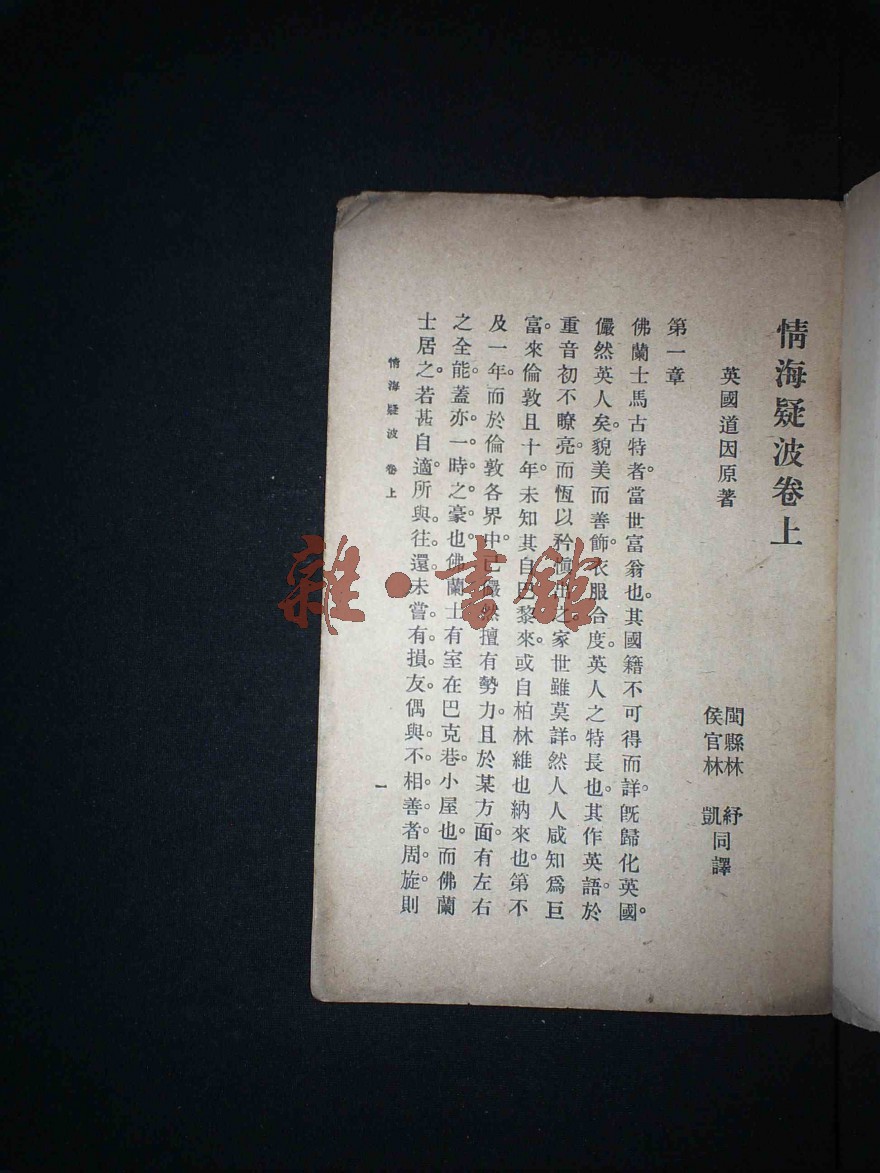 情海疑波卷上
英國道因原著
閩縣林 紓
侯官林 凱同譯
第一章
佛蘭士馬古特者。當世富翁也。其國籍不可得而詳。旣歸化英國。
儼然英人矣。貌美而善飾。衣服合度。英人之特長也。其作英語。於
重音初不瞭亮。而恆以矜愼出之。家世雖莫詳。然人人咸知爲巨
富。來倫敦且十年。未知其自巴黎來。或自柏林維也納來也。第不
及一年。而於倫敦各界中。已儼然擅有勢力。且於某方面有左右
之全能。蓋亦一時之豪也。佛蘭士有室在巴克巷。小屋也。而佛蘭
士居之。若甚自適。所與往還。未嘗有損友。偶與不相善者周旋。則
情海疑波 卷上
一
雜·書館